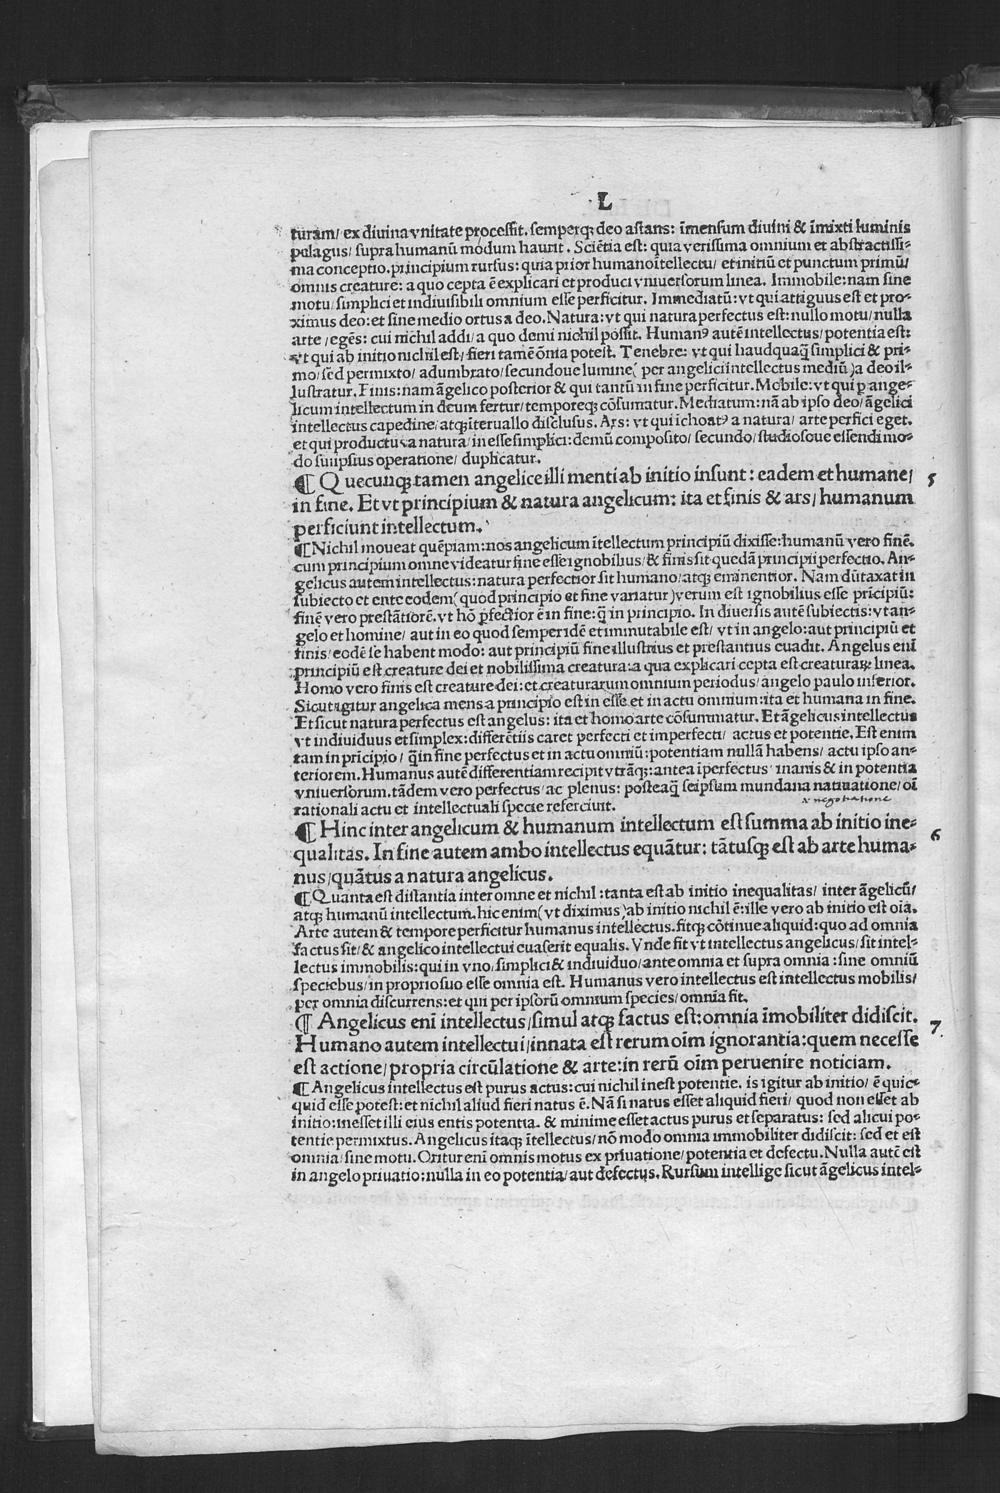 L
turam/ ex diuina vnitate processit. semperqꝫ deo astans: īmensum diuini & īmixti luminis
pelagus/ supra humanū modum haurit. Sciētia est: quia verissima omnium et abstractissi-
ma conceptio. principium rursus: quia prior humano ītellectu/ et initiū et punctum primū/
omnis creature: a quo cepta ē explicari et produci vniuersorum linea. Immobile: nam sine
motu/ simplici et indiuisibili omnium esse perficitur. Immediatū: vt qui attiguus est et pro-
ximus deo: et sine medio ortus a deo. Natura: vt qui natura perfectus est: nullo motu/ nulla
arte/ egēs: cui nichil addi/ a quo demi nichil possit. Humanꝰ autē intellectus/ potentia est:
vt qui ab initio nichil est/ fieri tamē ōnia potest. Tenebre: vt qui haudquaq̄ simplici & pri-
mo/ sed permixto/ adumbrato/ secundoue lumine( per angelici intellectus mediū )a deo il-
lustratur. Finis: nam āgelico posterior & qui tantū in fine perficitur. Mobile: vt qui ꝑ ange-
licum intellectum in deum fertur/ temporeqꝫ cōsumatur. Mediatum: nā ab ipso deo/ āgelici
intellectus capedine/ atqꝫ īteruallo disclusus. Ars: vt qui ichoatꝰ a natura/ arte perfici eget.
et qui productus a natura/ in esse simplici: demū composito/ secundo/ studiosoue essendi mo-
do suiipsius operatione/ duplicatur.
¶ Quecunqꝫ tamen angelice illi menti ab initio insunt: eadem et humane/ 5
in fine. Et vt principium & natura angelicum: ita et finis & ars/ humanum
perficiunt intellectum.
¶ Nichil moueat quēpiam: nos angelicum ītellectum principiū dixisse: humanū vero finē.
cum principium omne videatur fine esse ignobilius/ & finis sit quedā principii perfectio. An-
gelicus autem intellectus: natura perfectior sit humano/ atqꝫ eminentior. Nam dūtaxat in
subiecto et ente eodem( quod principio et fine variatur )verum est ignobilius esse prīcipiū:
finē vero prestātiorē. vt hō ꝑfectior ē in fine: q̄ in principio. In diuersis autē subiectis: vt an-
gelo et homine/ aut in eo quod semper idē et immutabile est/ vt in angelo: aut principiū et
finis/ eodē se habent modo: aut principiū fine illustrius et prestantius euadit. Angelus enī
principiū est creature dei et nobilissima creatura: a qua explicari cepta est creaturaꝝ linea.
Homo vero finis est creature dei: et creaturarum omnium periodus/ angelo paulo inferior.
Sicut igitur angelica mens a principio est in esse et in actu omnium: ita et humana in fine.
Et sicut natura perfectus est angelus: ita et homo arte cōsummatur. Et āgelicus intellectus
vt indiuiduus et simplex: differētiis caret perfecti et imperfecti/ actus et potentie. Est enim
tam in prīcipio/ q̄ in fine perfectus et in actu omniū: potentiam nullā habens/ actu ipso an-
teriorem. Humanus autē differentiam recipit vtrāqꝫ: antea īperfectus/ inanis & in potentia
vniuersorum. tādem vero perfectus/ ac plenus: posteaq̄ seipsum mundana natiuatione/ oī
rationali actu et intellectuali specie referciuit. x negotiatione
¶ Hinc inter angelicum & humanum intellectum est summa ab initio ine- 6
qualitas. In fine autem ambo intellectus equātur: tātusqꝫ est ab arte huma-
nus/ quātus a natura angelicus.
¶ Quanta est distantia inter omne et nichil: tanta est ab initio inequalitas/ inter āgelicū/
atqꝫ humanū intellectum. hic enim( vt diximus )ab initio nichil ē: ille vero ab initio est oīa.
Arte autem & tempore perficitur humanus intellectus. fitqꝫ cōtinue aliquid: quo ad omnia
factus sit/ & angelico intellectui euaserit equalis. Vnde fit vt intellectus angelicus/ sit intel-
lectus immobilis: qui in vno/ simplici & indiuiduo/ ante omnia et supra omnia: sine omniū
speciebus/ in proprio suo esse omnia est. Humanus vero intellectus est intellectus mobilis/
per omnia discurrens: et qui per ipsorū omnium species/ omnia fit.
¶ Angelicus enī intellectus/ simul atqꝫ factus est: omnia īmobiliter didiscit. 7.
Humano autem intellectui/ innata est rerum oīm ignorantia: quem necesse
est actione/ propria circūlatione & arte: in rerū oīm peruenire noticiam.
¶ Angelicus intellectus est purus actus: cui nichil inest potentie. is igitur ab initio/ ē quic-
quid esse potest: et nichil aliud fieri natus ē. Nā si natus esset aliquid fieri/ quod non esset ab
initio: inesset illi eius entis potentia. & minime esset actus purus et separatus: sed alicui po-
tentie permixtus. Angelicus itaqꝫ ītellectus/ nō modo omnia immobiliter didiscit: sed et est
omnia/ sine motu. Oritur enī omnis motus ex priuatione/ potentia et defectu. Nulla autē est
in angelo priuatio: nulla in eo potentia/ aut defectus. Rursum intellige sicut āgelicus intel-